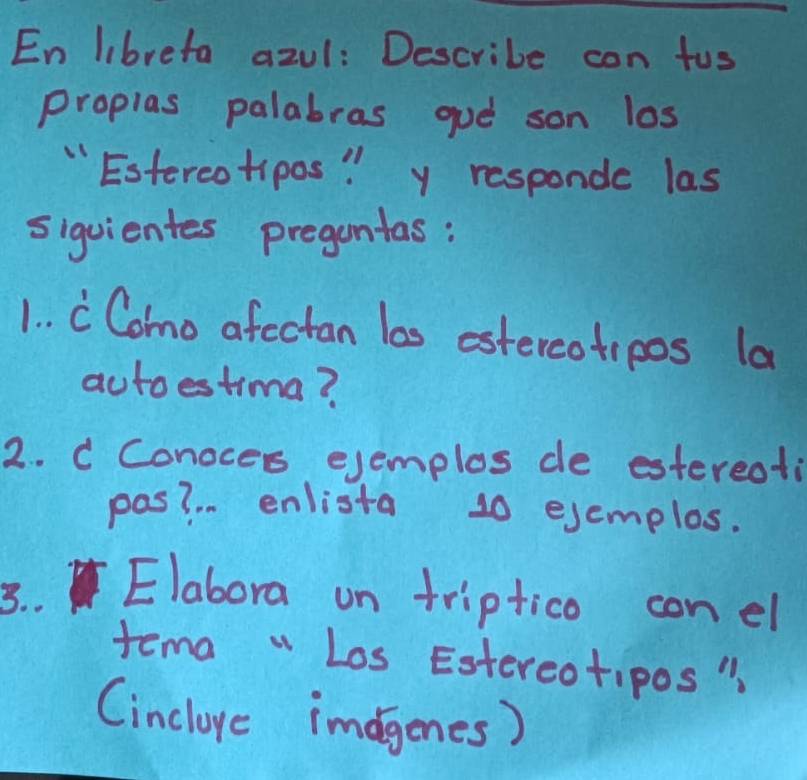 En libreta azul: Describe con tus
propias palabras qué son los
"Estereotipos". y responde las
siguientes preguntas:
1.. ¿Cómo afectan los estereotipos la
autoestima?
2.. ¿Conoces ejemplos de estereoti
pos?... enlista 10 ejemplos.
3.. Elabora un tríptico con el
tema "Los Estereotipos",
(incluye imágenes)